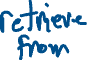 retrieve
from